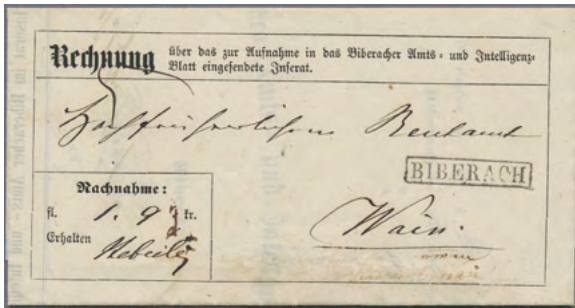 Rechnung über das zur Aufnahme in das Biberacher Amts- und Intelligenz-
Blatt eingesendete Inserat.
Hochfreiherrlichem Rentamt
BIBERACH
Nachnahme:
fl. 1. 9 kr.
Erhalten
Wain.